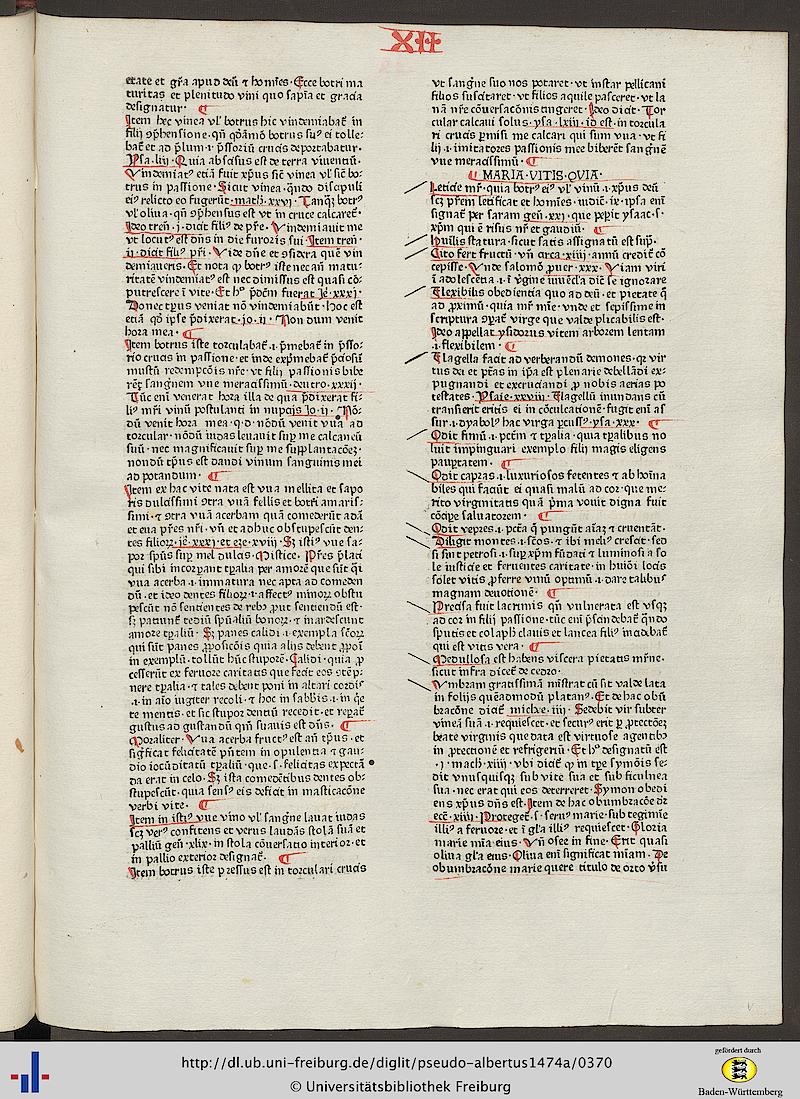 XII
etate et gr̃a apud deũ ⁊ hom̃ies· Ecce botri ma
turitas et plenitudo vini quo sapĩa et gracia
designatur·
Item hec vinea vl̃ botrus hic vindemiabat̃ in
bat̃ et ad p̃lum·ı·p̃ssoriũ crucis deportabatur·
Ysa·liij· Quia abscisus est de terra viuentiũ·
Vindemiatꝰ etiã fuit xp̃us sic̃ vinea vl̃ sic̃ bo
trus in passione· Sicut vinea·qñdo discipuli
eiꝰ relicto eo fugerũt·math̃·xxvi· Tanqꝫ botrꝰ
vl̃ oliua·
Ideo tren̄·i·dicit filiꝰ de pr̃e· Vindemiauit me
vt locutꝰ est dñs in die furoris sui· Item tren̄·
demiaueris· Et nota ꝙ botrꝰ iste nec añ matu
ritatẽ vindemiatꝰ est nec dimissus est quasi cõ
putrescere ĩ vite·
Donec tp̃us veniat nõ vindemiabũt· hoc est
etiã qđ ip̃e p̃dixerat·io·ii· Non dum venit
hora mea·
Item botrus iste torculabat̃·ı·p̃mebat̃ in p̃sso
rio crucis in passione·et inde exp̃mebat̃ p̃ciosũ
mustũ redempc̃õis nr̃e·vt filij passionis bibe
rẽt sangñem vue meracissimũ·deutro·xxxij·
Tũc eñi venerat hora illa de qua p̃dixerat fi
liꝰ mr̃i vinũ postulanti in nupcijs Io·ij· Nõ
dũ venit hora mea·q·d·nõdũ venit vua ad
torcular·nõdũ iudas leuauit suꝑ me calcaneũ
suũ·nec magnificauit suꝑ me supplantac̃oeꝫ·
nondũ tp̃us est dandi vinum sanguinis mei
ad potandum·
Item ex hac vite nata est vua mellita et sapo
ris dulcissimi ↄtra vuã fellis et botri amaris
simi·⁊ ↄtra vuã acerbam quã comederũt adã
et eua pr̃es nr̃i·vñ et adhuc obstupescũt den
tes filioꝝ·ie·xxxj·et eze·xviij· Sꝫ istiꝰ vue sa
por sp̃us suꝑ mel dulcis· Mistice· Pr̃es p̃lati
vua acerba·ı·immatura nec apta ad comeden
dũ·et ideo dentes filioꝝ·ı·affectꝰ minoꝝ obstu
pescũt nõ sentientes de rebꝫ ꝓut sentiendũ est·
sꝫ patiunt̃ tediũ sp̃ualiũ bonoꝝ·⁊ mardescunt
qui sũt panes ꝓposic̃õis quia alijs debent ꝓponi
in exemplũ·tollũt hũc stuporẽ· Calidi·quia ꝓ
cesserũt ex feruore caritatis que fecit eos ↄtẽp
nere tp̃alia·⁊ tales debent poni in altari cordis
te mentis·et sic stupor dentiũ recedit·et repat̃
gustus ad gustandũ qm̃ suauis est dñs·
Moraliter· Vua acerba fructꝰ est añ tp̃us·et
sig̃ficat felicitatẽ p̃ntem in opulentia ⁊ gau
dio iocũditatũ tp̃aliũ·que·s·felicitas expectã
da erat in celo· Sꝫ ista comedẽtibus dentes ob
stupescũt·quia sensꝰ eis deficit in masticacõne
verbi vite·
Item in istiꝰ vue vino vl̃ sangñe lauat iudas
scꝫ verꝰ confitens et verus laudãs stolã suã et
palliũ geñ·xlix·in stola cõuersatio interior·et
in pallio exterior designat̃·
Item botrus iste pressus est in torculari crucis
vt sangñe suo nos potaret·vt instar pellicani
filios suscitaret·vt filios aquile pasceret·vt la
nã nr̃e cõuersac̃onis tingeret· Ideo dicit· Tor
cular calcaui solus·ysa·lxiij·id est·in torcula
ri crucis p̃misi me calcari qui sum vua·vt fi
lij·ı·imitatores passionis mee biberẽt sangñẽ
vue meracissimũ·
MARIA·VITIS·QVIA·
Leticie mr̃·quia botrꝰ eiꝰ vl̃ vinũ·ı·xp̃us deũ
scꝫ pr̃em letificat et hom̃ies·iudic̃·ix·ip̃a eñi
signat̃ per saram geñ·xxi·que peꝑit ysaac·s·
xp̃m qui ẽ risus nr̃ et gaudiũ·
Hũilis statura·sicut satis assignatũ est sup̃·
Cito fert fructũ·vñ circa·xiiij·annũ credit̃ cõ
cepisse· Vnde salomõ ꝓuer·xxx· Viam viri
ĩ adolescẽtia·ı·ĩ v̾gine iuuẽcla dic̃ se ignorare
Flexibilis obediencia quo ad deũ·et pietate q̃
ad ꝓximũ·quia mr̃ mĩe·vnde et sepissime in
scriptura ↄpat̃ virge que valde plicabilis est·
Ideo appellat ysidorus vitem arborem lentam
·ı·flexibilem·
Flagella facit ad verberandũ demones·qꝫ vir
tus dei et ptãs in ip̃a est plenarie debellãdi ex
pugnandi et excruciandi ꝓ nobis aerias po
testates· Ysaie·xxviij· Flagellũ inundans cũ
transierit eritis ei in cõculcationẽ·fugit eñi as
sur·ı·dyabolꝰ hac virga ꝑcussꝰ·ysa·xxx·
Odit fimũ·ı·pctm̃ ⁊ tp̃alia·quia tp̃alibus no
luit impinguari exemplo filij magis eligens
paupertatem·
Odit capras·ı·luxuriosos fetentes ⁊ abhoĩna
biles qui faciũt ei quasi malũ ad cor·que me
rito virginitatis quã p̃ma vouit digna fuit
cõcipe saluatorem·
Odit vepres·ı·pctã q̃ pungũt aĩaꝫ ⁊ cruentãt·
Diligit montes·ı·sc̃os·⁊ ibi meliꝰ crescit·sed
si sint petrosi·ı·suꝑ xp̃m fũdati ⁊ luminosi a so
le iusticie et feruentes caritate·in huiõi locis
solet vitis ꝓferre vinũ optimũ·ı·dare talibus
magnam deuotionẽ·
Precisa fuit lacrimis qñ vulnerata est vsqꝫ
ad cor in filij passione·tũc eñi p̃scindebat̃ qñdo
sputis et colaph̃ clauis et lancea filiꝰ incidebat̃
qui est vitis vera·
Medullosa est habens viscera pietatis mr̃ne·
sicut infra dicet̃ de cedro·
Vmbram gratissimã mĩstrat cũ sit valde lata
in folijs quẽadmodũ platanꝰ· Et de hac obũ
brac̃one dicit̃ miche·iiij· Sedebit vir subter
vineã suã·ı·requiescet·et securꝰ erit ꝑ ꝓtectõeꝫ
beate virginis que data est virtuose agentibꝫ
in ꝓtectionẽ et refrigeriũ· Et hͦ designatũ est
·j·mach̃·xiiij·vbi dicit̃ ꝙ in tpr̃e symõis se
dit vnusquisqꝫ sub vite sua et sub ficulnea
sua·nec erat qui eos deterreret· Symon obedi
ens xp̃us dñs est· Item de hac obumbrac̃oẽ dr̃
ecc̃·xiiij· Proteget̃·s·seruꝰ marie·sub tegimĩe
illiꝰ a feruore·et ĩ gl̃a illiꝰ requiescet· Gloria
marie mĩa eius· Vñ osee in fine· Erit quasi
oliua gl̃a eius· Oliua eñi significat miam· De
obumbrac̃one marie quere titulo de orto v̾su
http://dl.ub.uni-freiburg.de/diglit/pseudo-albertus1474a/0370
© Universitätsbibliothek Freiburg
gefördert durch
Baden-Württemberg